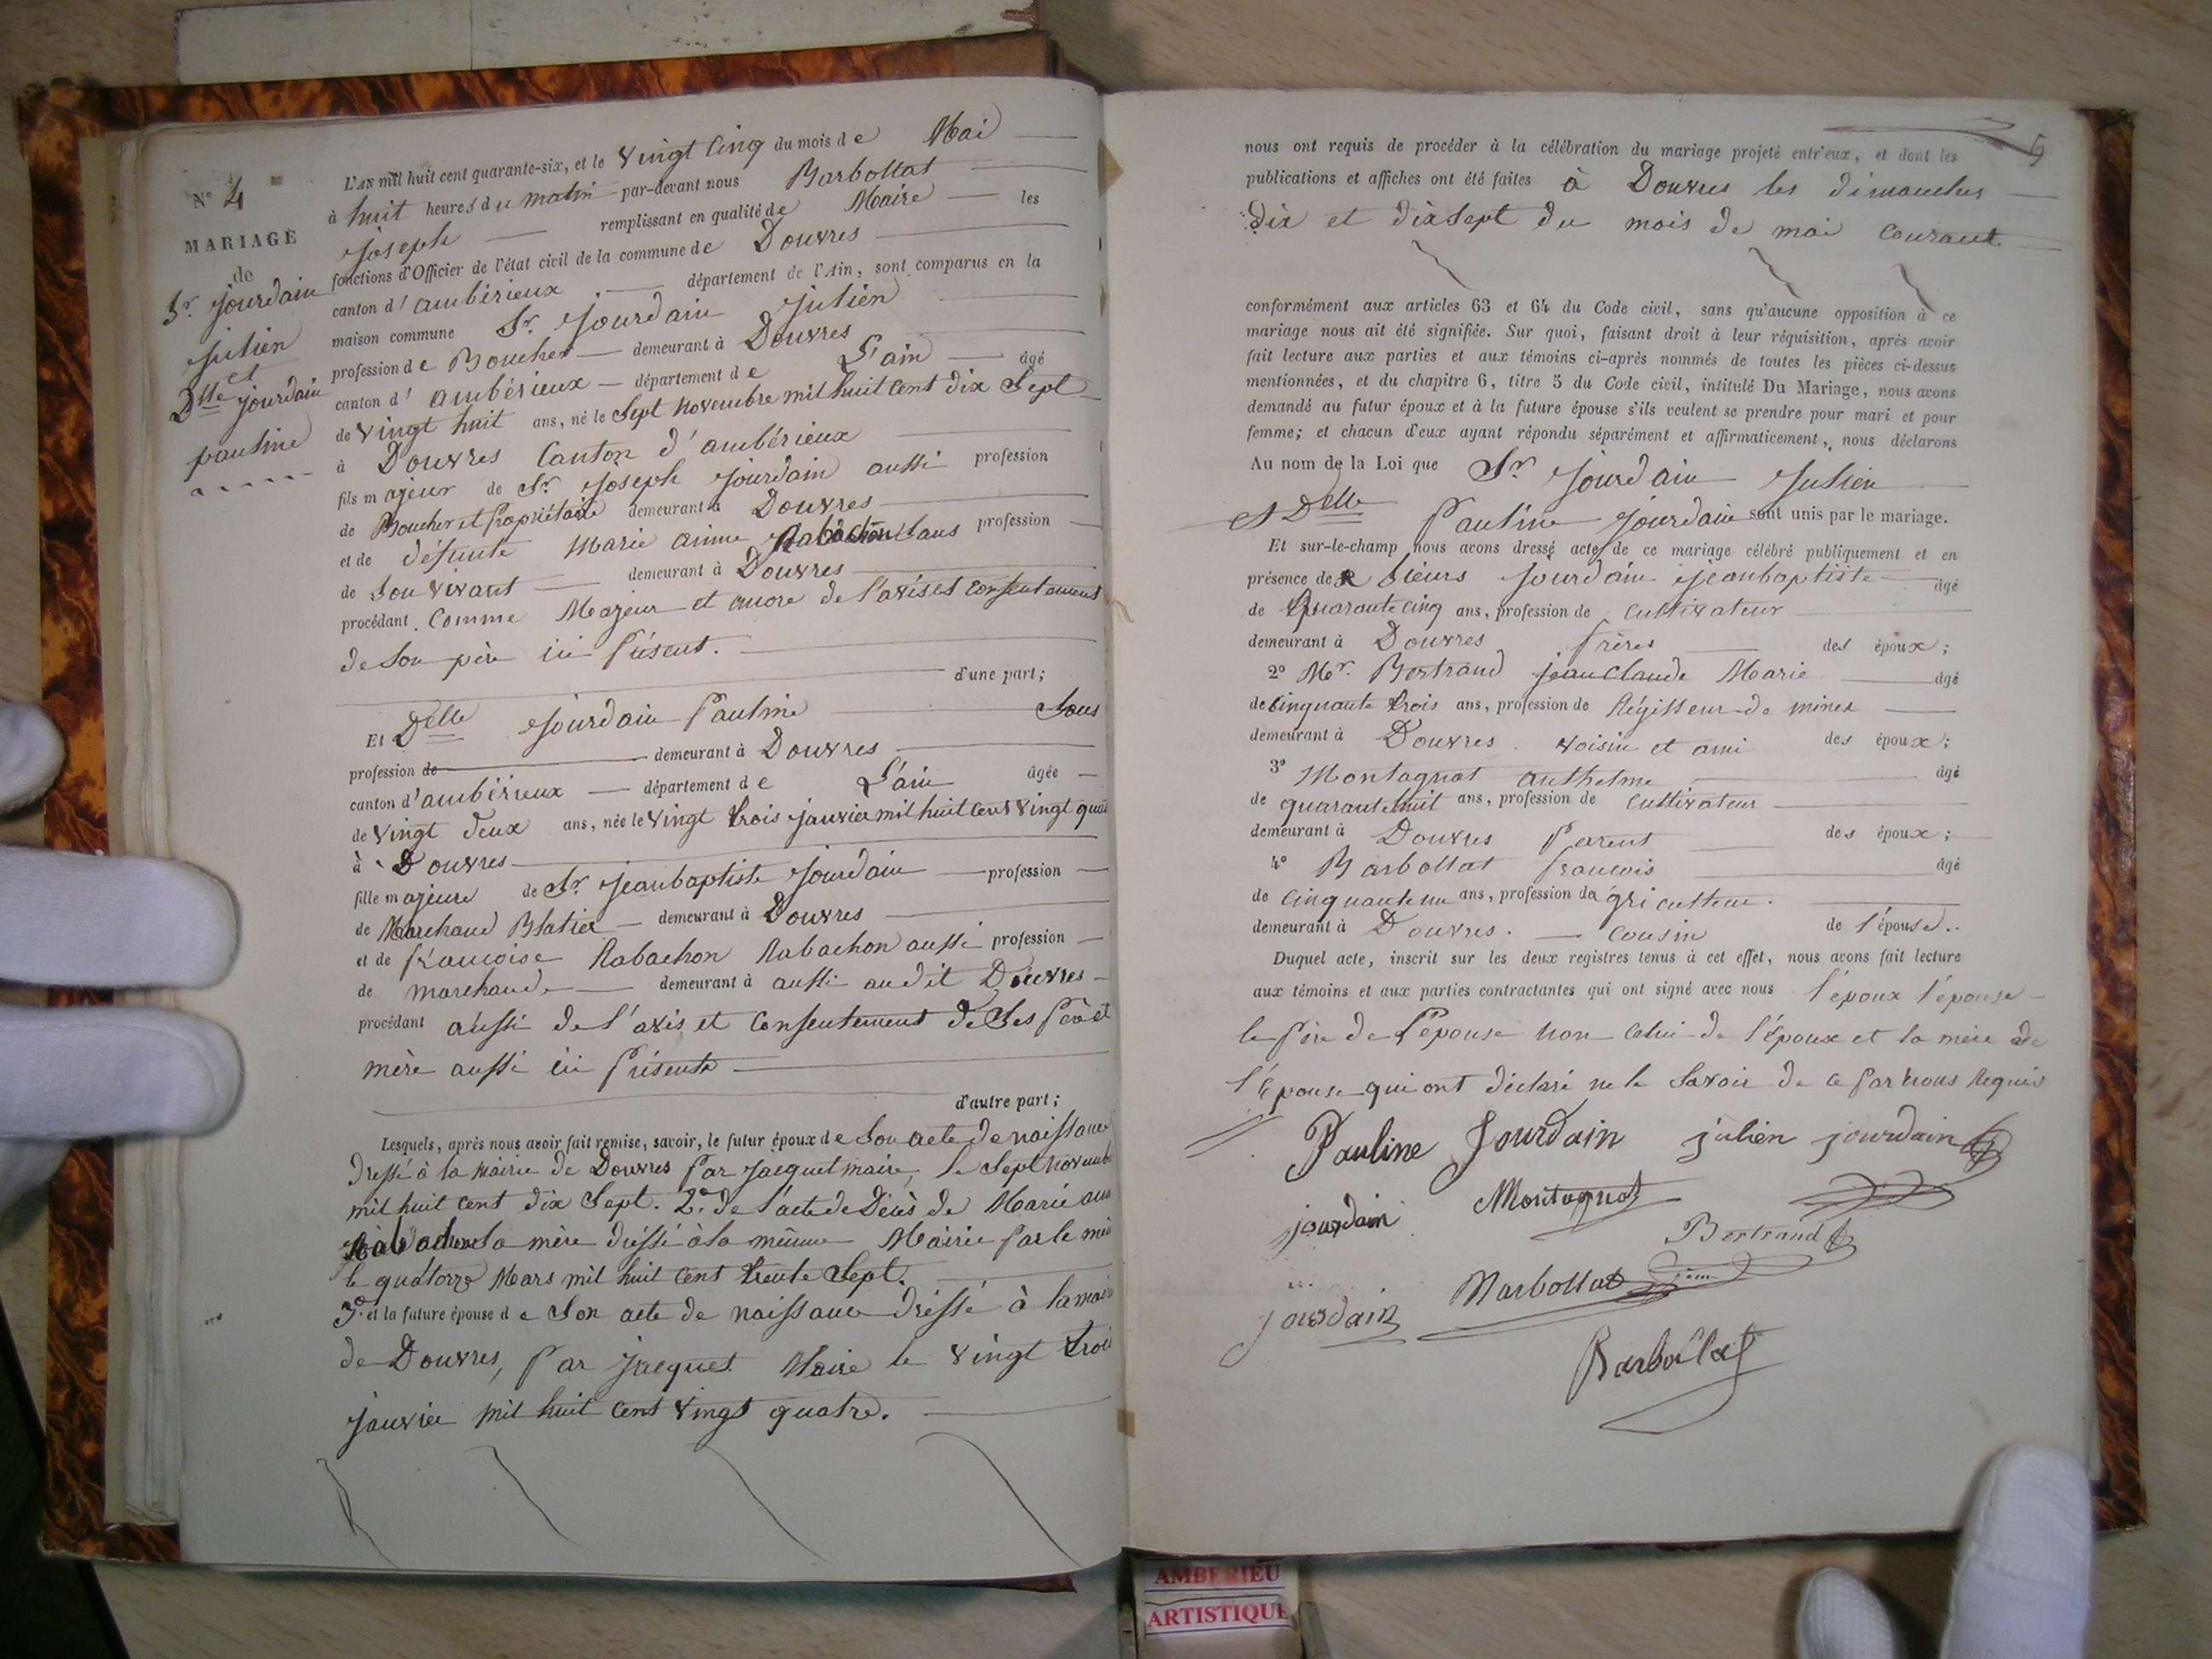 N° 4
MARIAGE
de
Sr. Jourdain
Julien
et
Dlle Jourdain
pauline
L'AN mil huit cent quarante-six, et le vingt Cinq du mois de Mai
à huit heures du matin par-devant nous Barbollat
Joseph remplissant en qualité de Maire les
fonctions d'Officier de l'état civil de la commune de Douvres
canton d'ambérieux département de l'Ain, sont comparus en la
maison commune Sr. Jourdain Julien
profession de Boucher demeurant à Douvres
canton d'ambérieux département de L'ain âgé
de vingt huit ans, né le Sept novembre mil huit cent dix Sept
à Douvres Canton d'ambérieux
fils majeur de Sr. Joseph Jourdain aussi profession
de Boucher et propriétaire demeurant à Douvres
et de défunte Marie aimée Rabachon Sans profession
de Son vivant demeurant à Douvres
procédant Comme Majeur et encore de l'avis et consentement
de Son père ici Présent.
d'une part;
Et Delle Jourdain Pauline Sans
profession de demeurant à Douvres
canton d'ambérieux département de L'ain âgée
de vingt deux ans, née le vingt trois janvier mil huit cent vingt quat
à Douvres
fille majeure de Sr. Jeanbaptiste Jourdain profession
de Marchand Blatier demeurant à Douvres
et de françoise Rabachon Rabachon aussi profession
de marchande demeurant à aussi audit Douvres
procédant aussi de l'avis et Consentement de Ses père et
mère aussi ici Présents
d'autre part;
Lesquels, après nous avoir fait remise, savoir, le futur époux de Son acte de naissance
Dressé à la Mairie de Douvres Par Jacquet maire, le Sept novemb
mil huit Cent dix Sept. 2.° de l'acte de Décès de Marie
Rabachon Sa mère dressé à la même Mairie Par le
le quatorze Mars mil huit Cent trente Sept.
3° et la future épouse de Son acte de naissance dressé à la mairie
de Douvres, Par Jacquet Maire le vingt trois
janvier mil huit Cent vingt quatre.
5
nous ont requis de procéder à la célébration du mariage projeté entr'eux, et dont les
publications et affiches ont été faites à Douvres les dimanches
dix et dixsept du mois de mai Courant.
conformément aux articles 63 et 64 du Code civil, sans qu'aucune opposition à ce
mariage nous ait été signifiée. Sur quoi, faisant droit à leur réquisition, après avoir
fait lecture aux parties et aux témoins ci-après nommés de toutes les pièces ci-dessus
mentionnées, et du chapitre 6, titre 5 du Code civil, intitulé Du Mariage, nous avons
demandé au futur époux et à la future épouse s'ils veulent se prendre pour mari et pour
femme; et chacun d'eux ayant répondu séparément et affirmativement, nous déclarons
Au nom de la Loi que Sr Jourdain Julien
et Delle Pauline Jourdain sont unis par le mariage.
Et sur-le-champ nous avons dressé acte de ce mariage célébré publiquement et en
présence de Sieurs Jourdain Jeanbaptiste âgé
de Quarante cinq ans, profession de Cultivateur
demeurant à Douvres frères des époux;
2° Mr. Bertrand Jean Claude Marie âgé
de Cinquante trois ans, profession de Régisseur de mines
demeurant à Douvres voisin et ami des époux;
3° Montagnat anthelme âgé
de quarante huit ans, profession de Cultivateur
demeurant à Douvres Parent des époux;
4° Barbollat francois âgé
de Cinquante un ans, profession d'agriculteur.
demeurant à Douvres. Cousin de l'épouse.
Duquel acte, inscrit sur les deux registres tenus à cet effet, nous avons fait lecture
aux témoins et aux parties contractantes qui ont signé avec nous l'époux l'épouse
le Père de l'épouse non Celui de l'époux et la mère de
l'épouse qui ont déclaré ne le Savoir de ce Par nous Requis
Pauline Jourdain julien jourdain
jourdain Montagnat
Bertrand
jourdain Barbollat
Barbollat
AMBERIEU
ARTISTIQUE